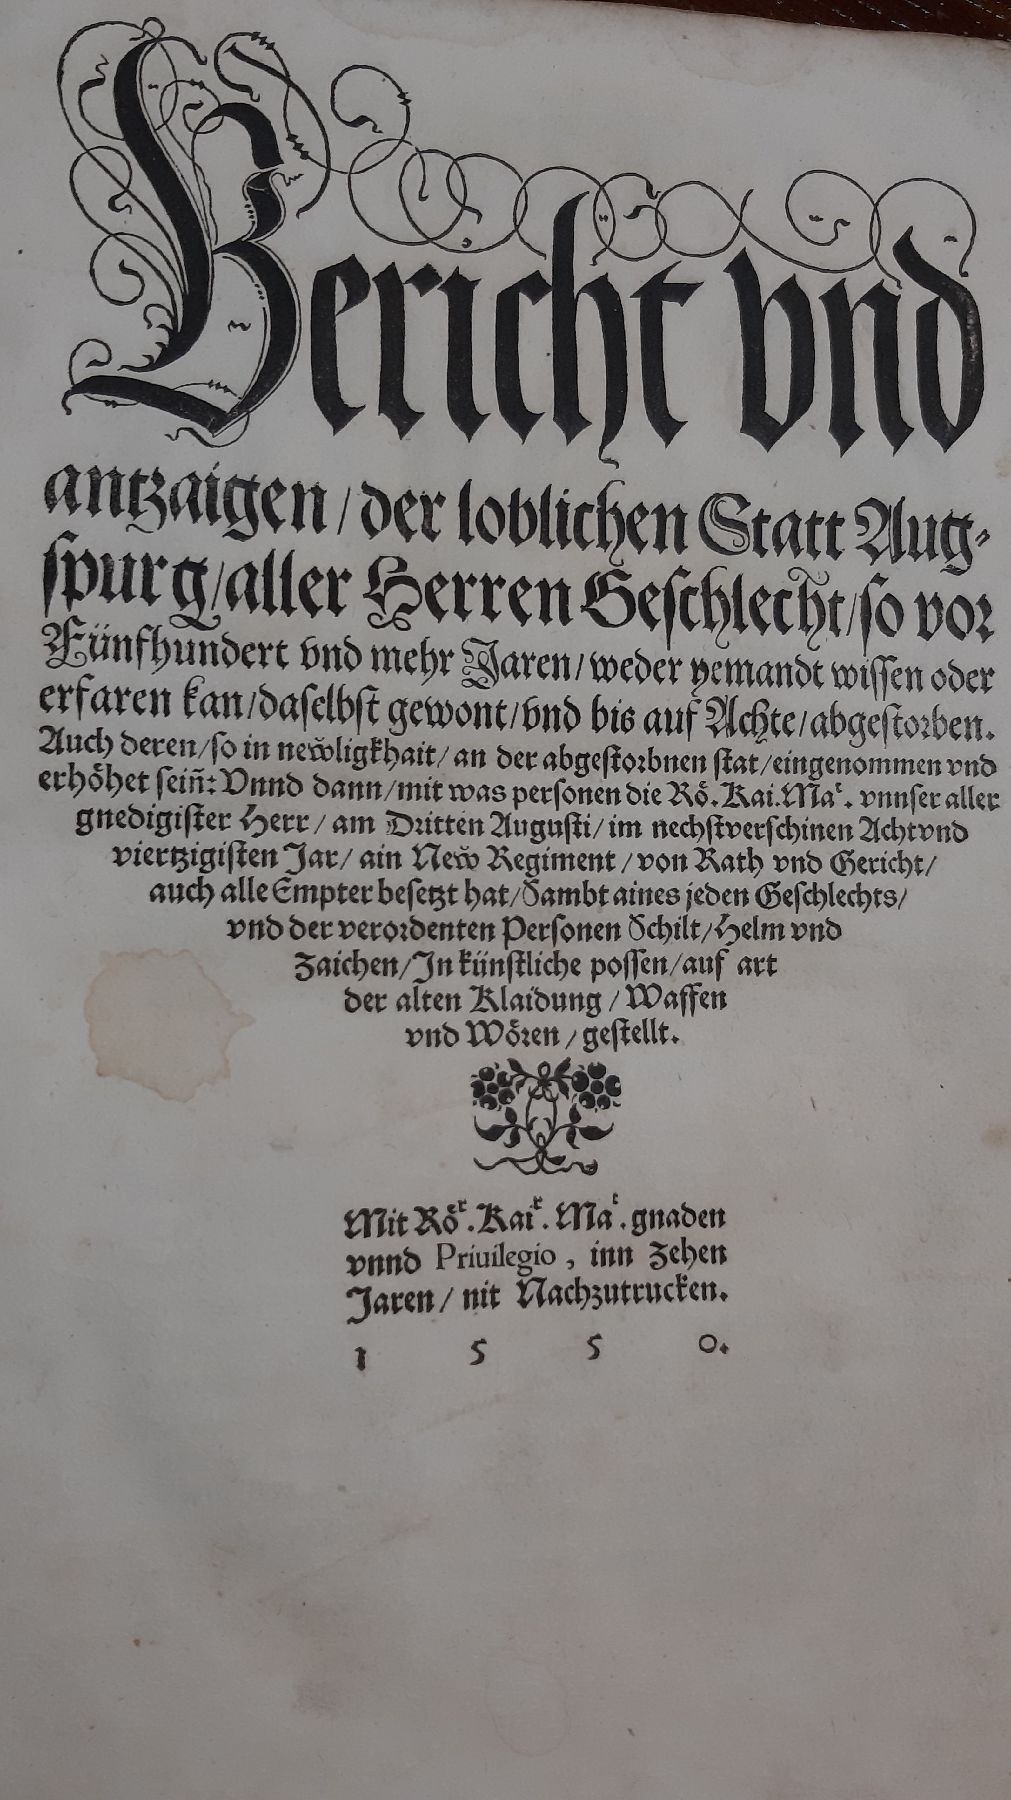 Bericht vnd
antzaigen / der loblichen Statt Aug⸗
spurg / aller Herren Geschlecht / so vor
Fünfhundert vnd mehr Jaren / weder yemandt wissen oder
erfaren kan / daselbst gewont / vnd bis auf Achte / abgestorben.
Auch deren / so in newͦligkhait / an der abgestorbnen stat / eingenommen vnd
erhöhet sein̄: Vnnd dann / mit was personen die Rö. Kai. Maᵗ. vnnser aller
gnedigister Herr / am Dritten Augusti / im nechstverschinen Achtvnd
viertzigisten Jar / ain Newͦ Regiment / von Rath vnd Gericht /
auch alle Empter besetzt hat / Sambt aines jeden Geschlechts /
vnd der verordenten Personen Schilt / Helm vnd
Zaichen / In künstliche possen / auf art
der alten Klaidung / Waffen
vnd Wören / gestellt.
Mit Röʳ. Kaiʳ. Maᵗ. gnaden
vnnd Priuilegio, inn Zehen
Jaren / nit Nachzutrucken.
1 5 5 0.